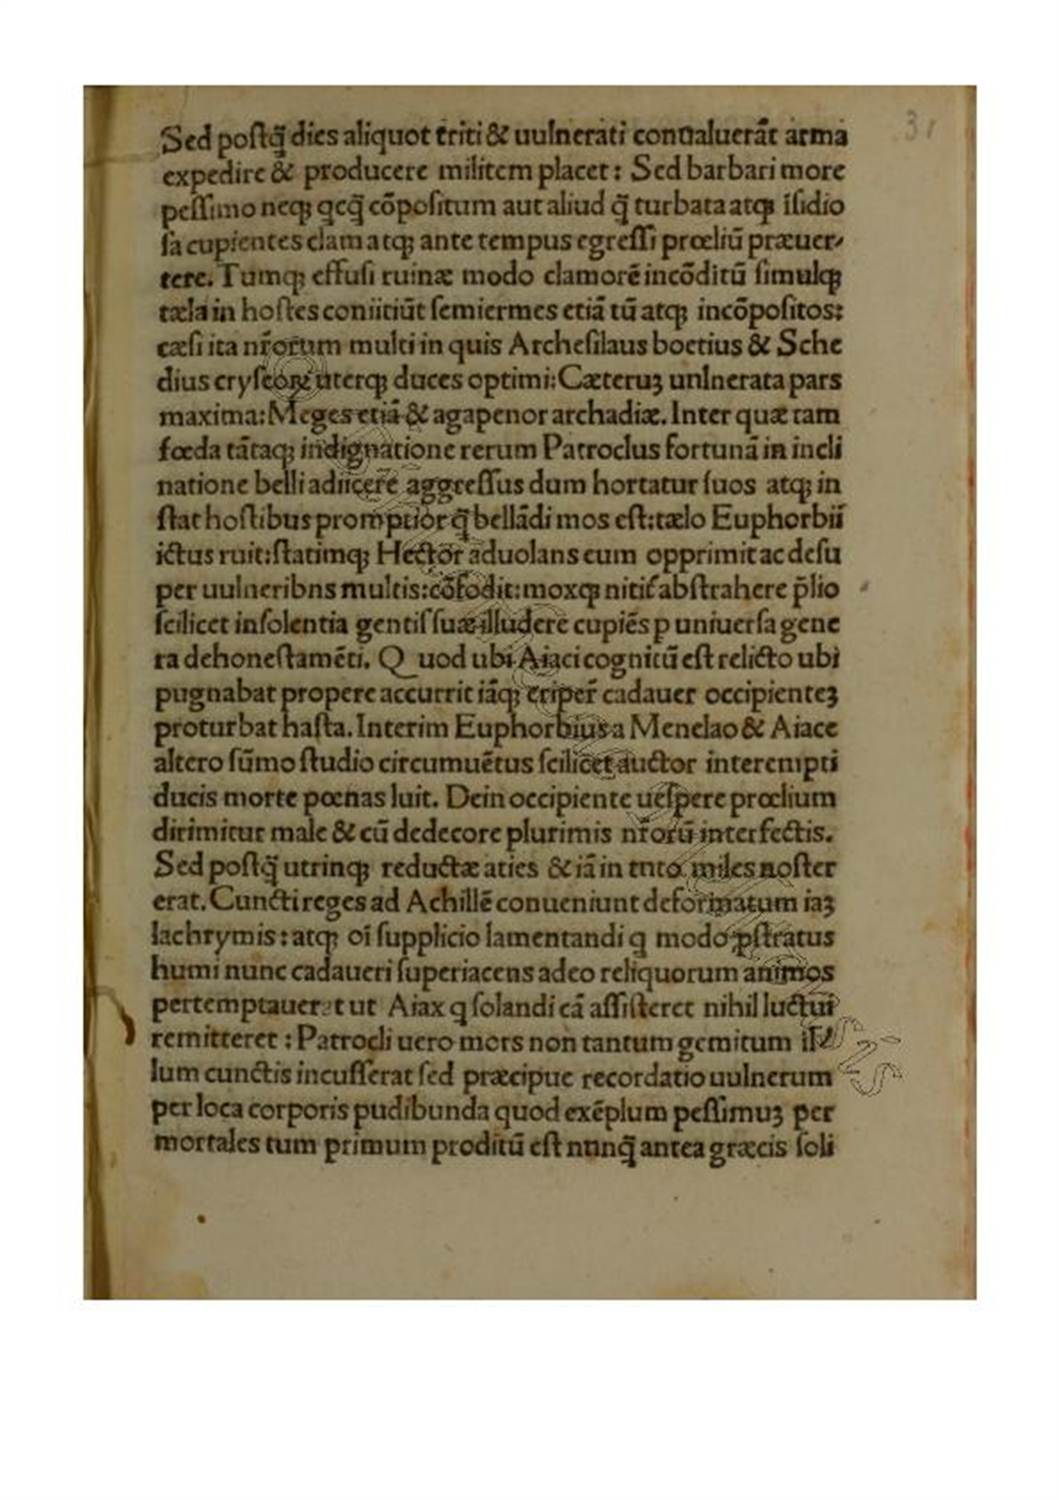 31
Sed poſtq̃ dies aliquot triti & uulnerati conualuerãt arma
expedire & producere militem placet: Sed barbari more
peſſimo neqꝫ qcq̃ cõpoſitum aut aliud q̃ turbata atqꝫ ĩſidio
ſa cupientes clam atqꝫ ante tempus egreſſi prœliũ præuer⸗
tere. Tumqꝫ effuſi ruinæ modo clamorẽ incõditũ ſimulqꝫ
tæla in hoſtes coniitiũt ſemiermes etiã tũ atqꝫ incõpoſitos:
cæſi ita nr̃orum multi in quis Archeſilaus boetius & Sche
dius cryſeorꝫ uterqꝫ duces optimi: Cæteruꝫ unlnerata pars
maxima: Meges etiã & agapenor archadiæ. Inter quæ tam
fœda tãtaqꝫ indignatione rerum Patroclus fortunã in incli
natione belli adiicere aggreſſus dum hortatur ſuos atqꝫ in
ſtat hoſtibus promptior q̃ bellãdi mos eſt: tælo Euphorbii
ictus ruit: ſtatimqꝫ Hector aduolans eum opprimit ac deſu
per uulneribns multis: cõfodit: moxqꝫ nitit᷑ abſtrahere p̃lio
ſcilicet inſolentia gentiſ ſuæ illudere cupiẽs p uniuerſa gene
ra dehoneſtamẽti. Q uod ubi Aiaci cognitũ eſt relicto ubi
pugnabat propere accurrit iãqꝫ eriper̃ cadauer occipienteꝫ
proturbat haſta. Interim Euphorbius a Menelao & Aiace
altero ſũmo ſtudio circumuẽtus ſcilicet auctor interempti
ducis morte pœnas luit. Dein occipiente ueſpere prœlium
dirimitur male & cũ dedecore plurimis nr̃orũ interfectis.
Sed poſtq̃ utrinqꝫ reductæ aties & iã in tnto miles noſter
erat. Cuncti reges ad Achillẽ conueniunt deformatum iaꝫ
lachrymis: atqꝫ oĩ ſupplicio lamentandi q modo ꝓſtratus
humi nunc cadaueri ſuperiacens adeo reliquorum animos
pertemptauerat ut Aiax q ſolandi cã aſſiſteret nihil luctui
remitteret: Patrocli uero mors non tantum gemitum il⸗
lum cunctis incuſſerat ſed præcipue recordatio uulnerum
per loca corporis pudibunda quod exẽplum peſſimuꝫ per
mortales tum primum proditũ eſt nunq̃ antea græcis ſoli